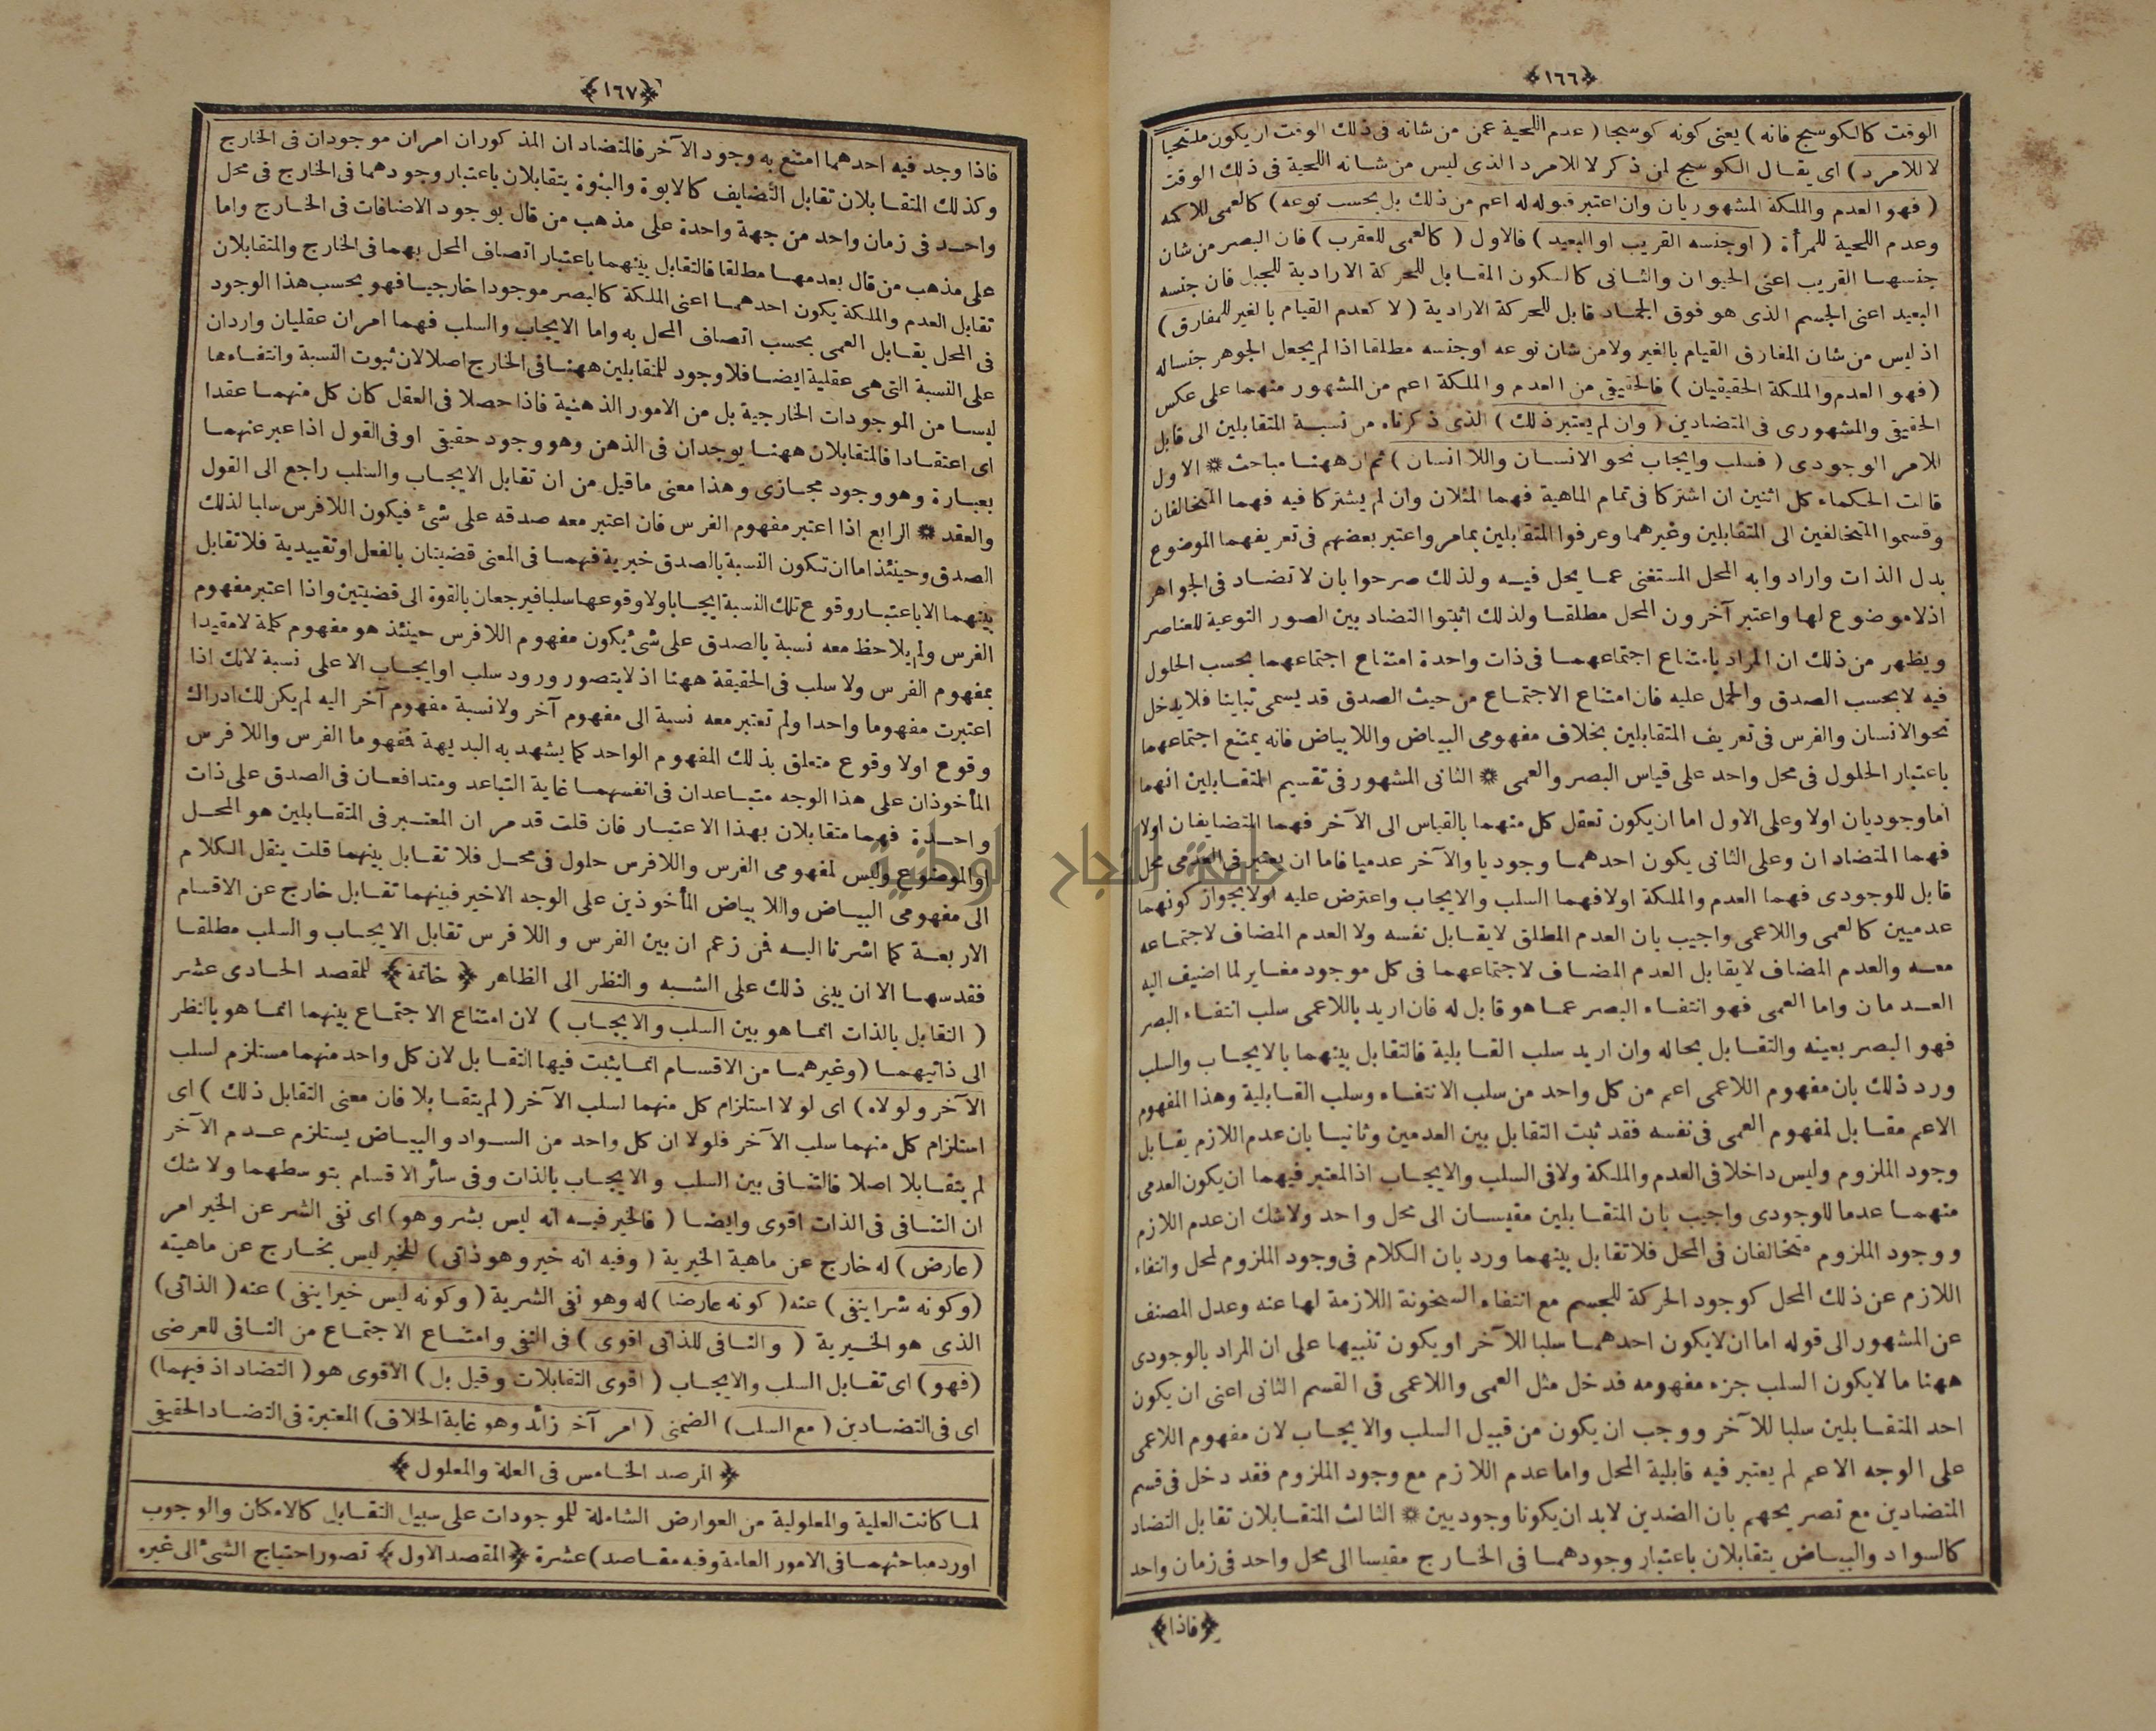 ﴿١٦٦﴾
الوقت كالكوسج فانه ) يعنى كونه كوسجا ( عدم اللحية عمن من شانه فى ذلك الوقت ان يكون ملتحيا
لا للامرد ) اى يقال الكوسج لمن ذكر لا للامرد الذى ليس من شانه اللحية فى ذلك الوقت
( فهو العدم والملكة المشهوريان وان اعتبر قبوله له اعم من ذلك بل بحسب نوعه ) كالعمى للاكمه
وعدم اللحية للمرأة ( او جنسه القريب او البعيد ) فالاول ( كالعمى للعقرب ) فان البصر من شان
جنسها القريب اعنى الحيوان والثانى كالسكون المقابل للحركة الارادية للجبل فان جنسه
البعيد اعنى الجسم الذى هو فوق الجماد قابل للحركة الارادية ( لا كعدم القيام بالغير للمفارق )
اذ ليس من شان المفارق القيام بالغير ولا من شان نوعه او جنسه مطلقا اذا لم يجعل الجوهر جنسا له
( فهو العدم والملكة الحقيقيان ) فالحقيقى من العدم والملكة اعم من المشهور منهما على عكس
الحقيقى والمشهورى فى المتضادين ( وان لم يعتبر ذلك ) الذى ذكرناه من نسبة المتقابلين الى قابل
للامر الوجودى ( فسلب وايجاب نحو الانسان واللا انسان ) ثم ان ههنا مباحث * الاول
قالت الحكماء كل اثنين ان اشتركا فى تمام الماهية فهما المثلان وان لم يشتركا فيه فهما المتخالفان
وقسموا المتخالفين الى المتقابلين وغيرهما وعرفوا المتقابلين بما مر واعتبر بعضهم فى تعريفهما الموضوع
بدل الذات وارادوا به المحل المستغنى عما يحل فيه ولذلك صرحوا بان لا تضاد فى الجواهر
اذ لا موضوع لها واعتبر آخرون المحل مطلقا ولذلك اثبتوا التضاد بين الصور النوعية للعناصر
ويظهر من ذلك ان المراد بامتناع اجتماعهما فى ذات واحدة امتناع اجتماعهما بحسب الحلول
فيه لا بحسب الصدق والحمل عليه فان امتناع الاجتماع من حيث الصدق قد يسمى تباينا فلا يدخل
نحو الانسان والفرس فى تعريف المتقابلين بخلاف مفهومى البياض واللابياض فانه يمتنع اجتماعهما
باعتبار الحلول فى محل واحد على قياس البصر والعمى * الثانى المشهور فى تقسيم المتقابلين انهما
اما وجوديان اولا وعلى الاول اما ان يكون تعقل كل منهما بالقياس الى الآخر فهما المتضايفان اولا
فهما المتضادان وعلى الثانى يكون احدهما وجوديا والآخر عدميا فاما ان يعتبر فى العدمى محل
قابل للوجودى فهما العدم والملكة اولا فهما السلب والايجاب واعترض عليه اولا بجواز كونهما
عدميين كالعمى واللاعمى واجيب بان العدم المطلق لا يقابل نفسه ولا العدم المضاف لاجتماعه
معه والعدم المضاف لا يقابل العدم المضاف لاجتماعهما فى كل موجود مغاير لما اضيف اليه
العدمان واما العمى فهو انتفاء البصر عما هو قابل له فان اريد باللاعمى سلب انتفاء البصر
فهو البصر بعينه والتقابل بحاله وان اريد سلب القابلية فالتقابل بينهما بالايجاب والسلب
ورد ذلك بان مفهوم اللاعمى اعم من كل واحد من سلب الانتفاء وسلب القابلية وهذا المفهوم
الاعم مقابل لمفهوم العمى فى نفسه فقد ثبت التقابل بين العدمين وثانيا بان عدم اللازم يقابل
وجود الملزوم وليس داخلا فى العدم والملكة ولا فى السلب والايجاب اذ المعتبر فيهما ان يكون العدمى
منهما عدما للوجودى واجيب بان المتقابلين مقيسان الى محل واحد ولا شك ان عدم اللازم
ووجود الملزوم متخالفان فى المحل فلا تقابل بينهما ورد بان الكلام فى وجود الملزوم لمحل وانتفاء
اللازم عن ذلك المحل كوجود الحركة للجسم مع انتفاء السخونة اللازمة لها عنه وعدل المصنف
عن المشهور الى قوله اما ان لا يكون احدهما سلبا للآخر او يكون تنبيها على ان المراد بالوجودى
ههنا ما لا يكون السلب جزء مفهومه فدخل مثل العمى واللاعمى فى القسم الثانى اعنى ان يكون
احد المتقابلين سلبا للآخر ووجب ان يكون من قبيل السلب والايجاب لان مفهوم اللاعمى
على الوجه الاعم لم يعتبر فيه قابلية المحل واما عدم اللازم مع وجود الملزوم فقد دخل فى قسم
المتضادين مع تصريحهم بان الضدين لابد ان يكونا وجوديين * الثالث المتقابلان تقابل التضاد
كالسواد والبياض يتقابلان باعتبار وجودهما فى الخارج مقيسا الى محل واحد فى زمان واحد
﴿فاذا﴾
﴿١٦٧﴾
فاذا وجد فيه احدهما امتنع به وجود الآخر فالمتضادان المذكوران امران موجودان فى الخارج
وكذلك المتقابلان تقابل التضايف كالابوة والبنوة يتقابلان باعتبار وجودهما فى الخارج فى محل
واحد فى زمان واحد من جهة واحدة على مذهب من قال بوجود الاضافات فى الخارج واما
على مذهب من قال بعدمها مطلقا فالتقابل بينهما باعتبار اتصاف المحل بهما فى الخارج والمتقابلان
تقابل العدم والملكة يكون احدهما اعنى الملكة كالبصر موجودا خارجيا فهو بحسب هذا الوجود
فى المحل يقابل العمى بحسب اتصاف المحل به واما الايجاب والسلب فهما امران عقليان واردان
على النسبة التى هى عقلية ايضا فلا وجود للمتقابلين ههنا فى الخارج اصلا لان ثبوت النسبة وانتفاءها
ليسا من الموجودات الخارجية بل من الامور الذهنية فاذا حصلا فى العقل كان كل منهما عقدا
اى اعتقادا فالمتقابلان ههنا يوجدان فى الذهن وهو وجود حقيقى او فى القول اذا عبر عنهما
بعبارة وهو وجود مجازى وهذا معنى ما قيل من ان تقابل الايجاب والسلب راجع الى القول
والعقد * الرابع اذا اعتبر مفهوم الفرس فان اعتبر معه صدقه على شئ فيكون اللافرس سلبا لذلك
الصدق وحينئذ اما ان تكون النسبة بالصدق خبرية فهما فى المعنى قضيتان بالفعل او تقييدية فلا تقابل
بينهما الا باعتبار وقوع تلك النسبة ايجابا ولا وقوعها سلبا فيرجعان بالقوة الى قضيتين واذا اعتبر مفهوم
الفرس ولم يلاحظ معه نسبة بالصدق على شئ يكون مفهوم اللافرس حينئذ هو مفهوم كلمة لا مقيدا
بمفهوم الفرس ولا سلب فى الحقيقة ههنا اذ لا يتصور ورود سلب او ايجاب الا على نسبة لانك اذا
اعتبرت مفهوما واحدا ولم تعتبر معه نسبة الى مفهوم آخر ولا نسبة مفهوم آخر اليه لم يكن لك ادراك
وقوع او لا وقوع متعلق بذلك المفهوم الواحد كما يشهد به البديهة فمفهوما الفرس واللافرس
المأخوذان على هذا الوجه متباعدان فى انفسهما غاية التباعد ومتدافعان فى الصدق على ذات
واحدة فهما متقابلان بهذا الاعتبار فان قلت قد مر ان المعتبر فى المتقابلين هو المحل
او الموضوع وليس لمفهومى الفرس واللافرس حلول فى محل فلا تقابل بينهما قلت ينقل الكلام
الى مفهومى البياض واللابياض المأخوذين على الوجه الاخير فبينهما تقابل خارج عن الاقسام
الاربعة كما اشرنا اليه فمن زعم ان بين الفرس واللافرس تقابل الايجاب والسلب مطلقا
فقد سها الا ان يبنى ذلك على الشبه والنظر الى الظاهر ﴿ خاتمة ﴾ للمقصد الحادى عشر
( التقابل بالذات انما هو بين السلب والايجاب ) لان امتناع الاجتماع بينهما انما هو بالنظر
الى ذاتيهما ( وغيرهما من الاقسام انما يثبت فيها التقابل لان كل واحد منهما مستلزم لسلب
الآخر ولولاه ) اى لولا استلزام كل منهما لسلب الآخر ( لم يتقابلا فان معنى التقابل ذلك ) اى
استلزام كل منهما سلب الآخر فلولا ان كل واحد من السواد والبياض يستلزم عدم الآخر
لم يتقابلا اصلا فالتنافى بين السلب والايجاب بالذات وفى سائر الاقسام بتوسطهما ولا شك
ان التنافى فى الذات اقوى وايضا ( فالخير فيه انه ليس بشر وهو ) اى نفى الشر عن الخير امر
( عارض ) له خارج عن ماهية الخيرية ( وفيه انه خير وهو ذاتى ) للخير ليس بخارج عن ماهيته
( وكونه شرا ينفى ) عنه ( كونه عارضا ) له وهو نفى الشرية ( وكونه ليس خيرا ينفى ) عنه ( الذاتى )
الذى هو الخيرية ( والنافى للذاتى اقوى ) فى النفى وامتناع الاجتماع من النافى للعرضى
( فهو ) اى تقابل السلب والايجاب ( اقوى التقابلات وقيل بل ) الاقوى هو ( التضاد اذ فيهما )
اى فى التضادين ( مع السلب ) الضمنى ( امر آخر زائد وهو غاية الخلاف ) المعتبرة فى التضاد الحقيقى
﴿ المرصد الخامس فى العلة والمعلول ﴾
لما كانت العلية والمعلولية من العوارض الشاملة للموجودات على سبيل التقابل كالامكان والوجوب
اورد مباحثهما فى الامور العامة وفيه مقاصد ) عشرة ﴿ المقصد الاول ﴾ تصور احتياج الشئ الى غيره
جامعة النجاح الوطنية